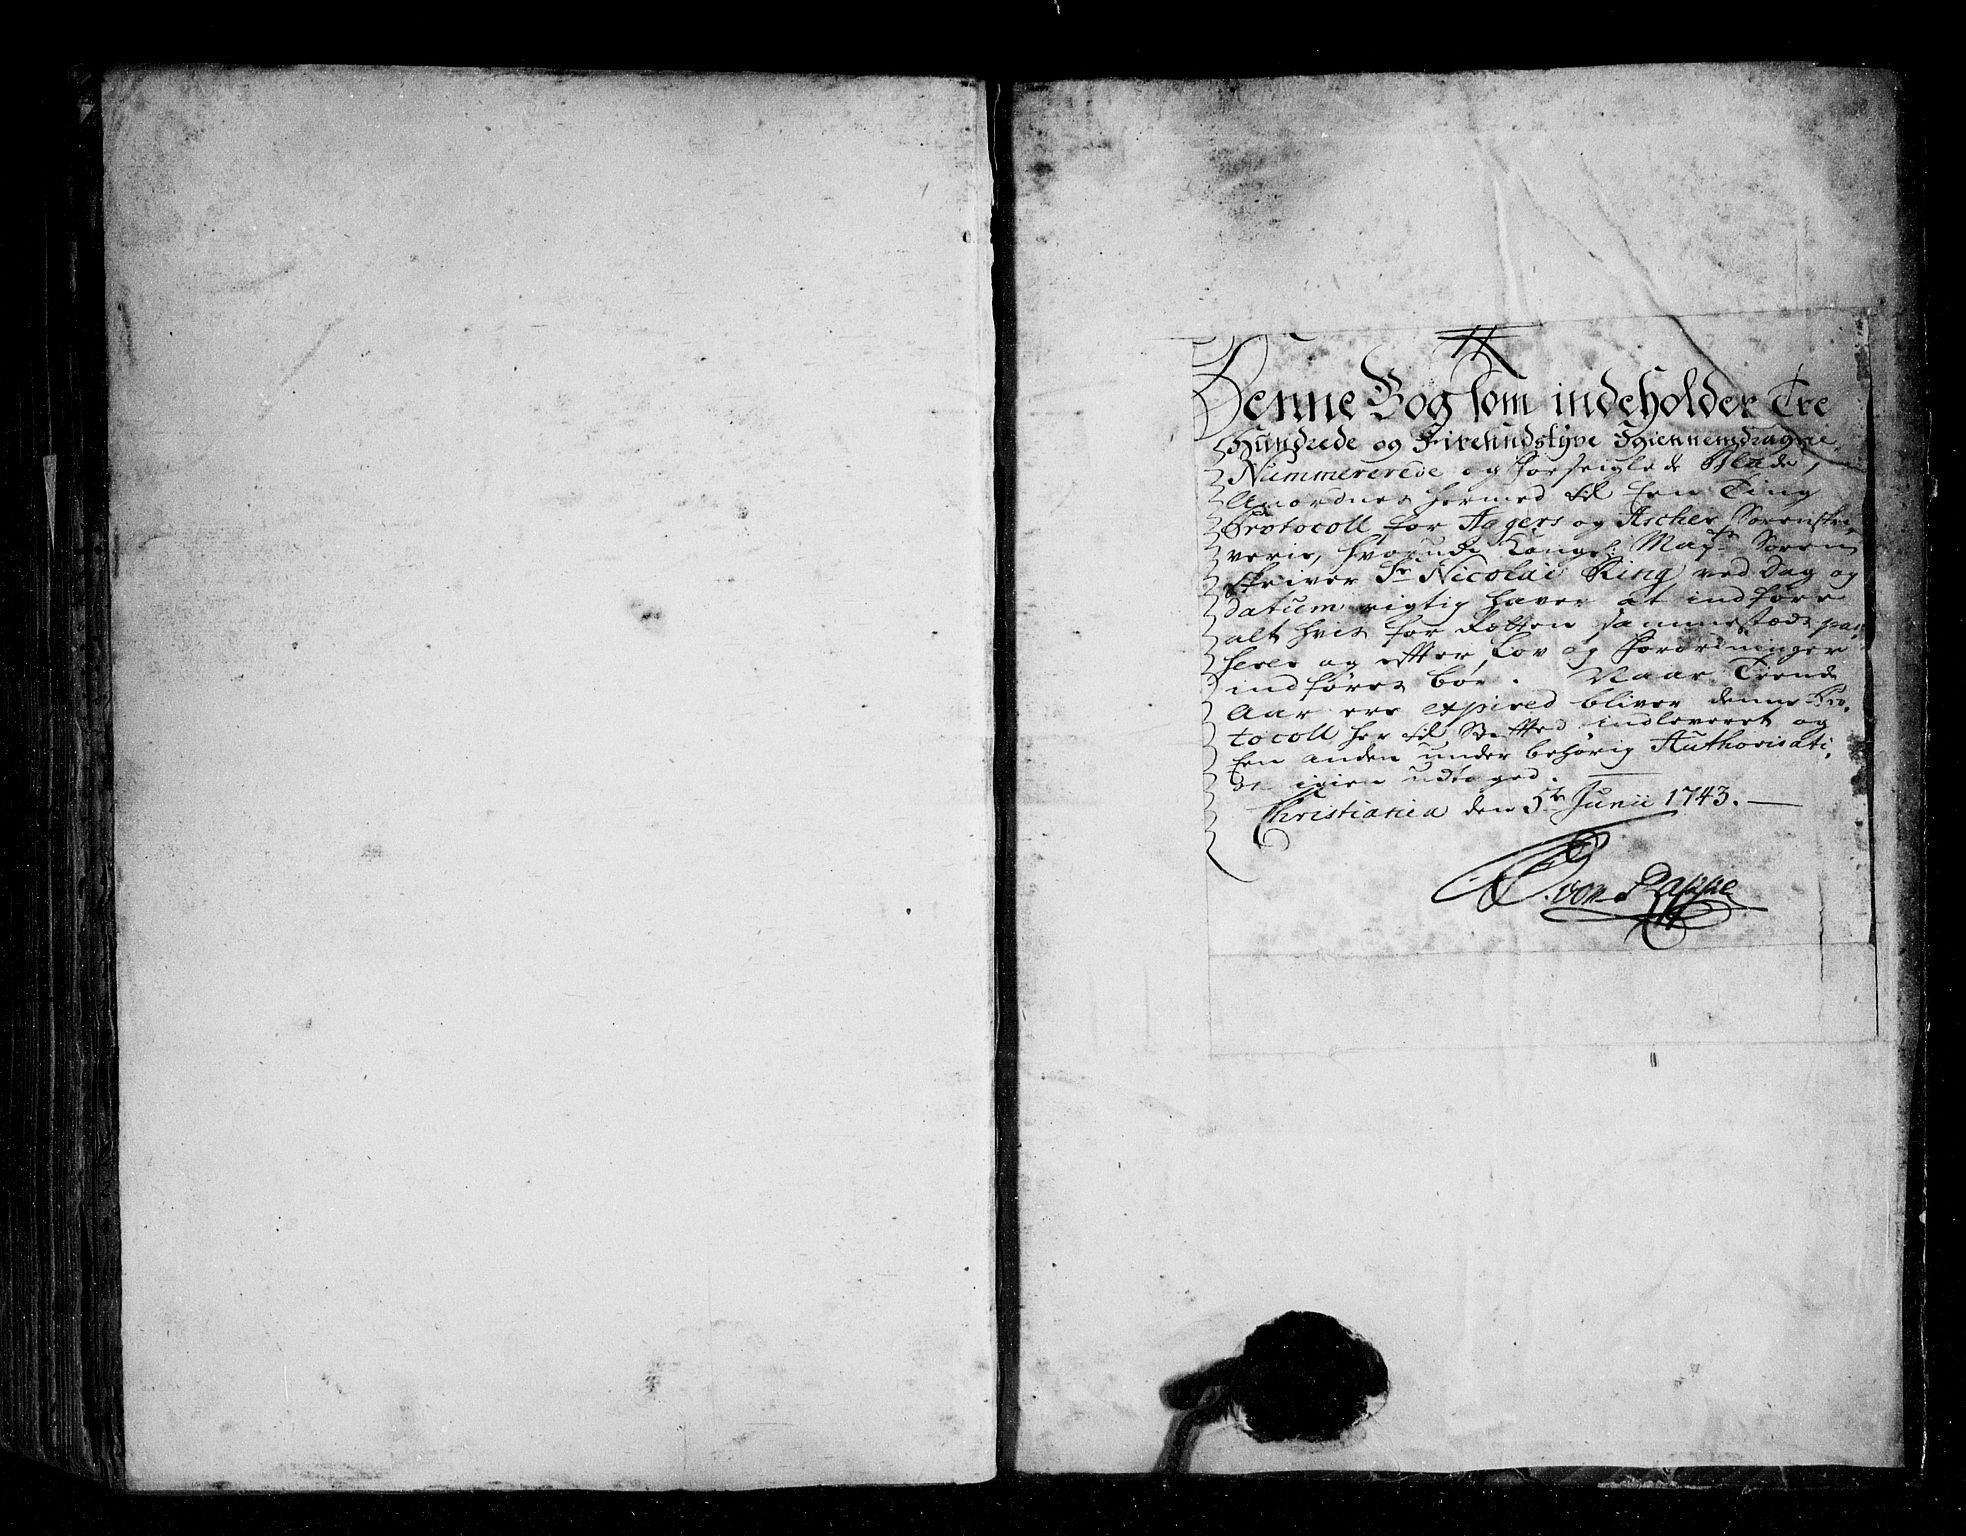 Denne Bog som indeholder Tre
Hundrede og Firesindstyve Igiennemdragne
Nummererede og Forseiglede Blade,
Anordnes hermed til Een Ting
Protocoll for Aggers og Ascher Sorenskri,
verie, hvorudi Kongel: Mayts Soren
skriver Sr Nicolai Ring ved dag og
datum rigtig haver at indføre
alt hvis for Rætten sammestæds pas,
serer og effter Lov og Forordninger
indføres bør. Naar Trende
Aar ere expired bliver denne Pro,
tocoll her til Stifftet indleveret og
Een anden under behørig Authorisati,
on igien udtaged.
Christiania den 5te Junii 1743.
von Rappe